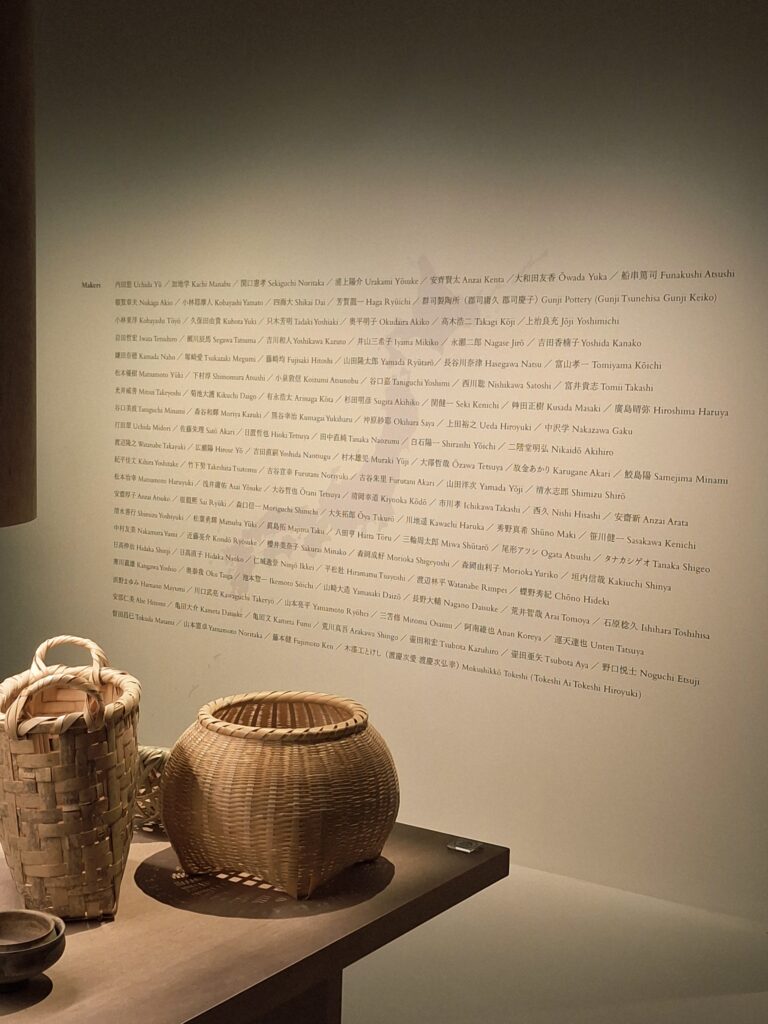 Makers 内田悠 Uchida Yū ／ 加地学 Kachi Manabu ／ 関口憲孝 Sekiguchi Noritaka ／ 浦上陽介 Urakami Yōsuke ／ 安齊賢太 Anzai Kenta ／ 大和田友香 Ōwada Yuka ／ 船串篤司 Funakushi Atsushi
額賀章夫 Nukaga Akio ／ 小林耶摩人 Kobayashi Yamato ／ 四海大 Shikai Dai ／ 芳賀龍一 Haga Ryūichi ／ 郡司製陶所（郡司庸久 郡司慶子）Gunji Pottery (Gunji Tsunehisa Gunji Keiko)
小林東洋 Kobayashi Tōyō ／ 久保田由貴 Kubota Yuki ／ 只木芳明 Tadaki Yoshiaki ／ 奥平明子 Okudaira Akiko ／ 高木浩二 Takagi Kōji ／ 上治良充 Jōji Yoshimichi
岩田哲宏 Iwata Tetsuhiro ／ 瀬川辰馬 Segawa Tatsuma ／ 吉川和人 Yoshikawa Kazuto ／ 井山三希子 Iyama Mikiko ／ 永瀬二郎 Nagase Jirō ／ 吉田香楠子 Yoshida Kanako
鎌田奈穂 Kamada Naho ／ 塚崎愛 Tsukazaki Megumi ／ 藤崎均 Fujisaki Hitoshi ／ 山田隆太郎 Yamada Ryūtarō ／ 長谷川奈津 Hasegawa Natsu ／ 富山孝一 Tomiyama Kōichi
松本優樹 Matsumoto Yūki ／ 下村淳 Shimomura Atsushi ／ 小泉敦信 Koizumi Atsunobu ／ 谷口嘉 Taniguchi Yoshimi ／ 西川聡 Nishikawa Satoshi ／ 富井貴志 Tomii Takashi
光井威善 Mitsui Takeyoshi ／ 菊地大護 Kikuchi Daigo ／ 有永浩太 Arinaga Kōta ／ 杉田明彦 Sugita Akihiko ／ 関健一 Seki Kenichi ／ 艸田正樹 Kusada Masaki ／ 廣島晴弥 Hiroshima Haruya
谷口美波 Taniguchi Minami ／ 森谷和輝 Moriya Kazuki ／ 熊谷幸治 Kumagai Yukiharu ／ 沖原紗耶 Okihara Saya ／ 上田裕之 Ueda Hiroyuki ／ 中沢学 Nakazawa Gaku
打田翠 Uchida Midori ／ 佐藤朱理 Satō Akari ／ 日置哲也 Hioki Tetsuya ／ 田中直純 Tanaka Naozumi ／ 白石陽一 Shiraishi Yōichi ／ 二階堂明弘 Nikaidō Akihiro
渡辺隆之 Watanabe Takayuki ／ 広瀬陽 Hirose Yō ／ 吉田直嗣 Yoshida Naotsugu ／ 村木雄児 Muraki Yūji ／ 大澤哲哉 Ōzawa Tetsuya ／ 苅金あかり Karugane Akari ／ 鮫島陽 Samejima Minami
紀平佳丈 Kihira Yoshitake ／ 竹下努 Takeshita Tsutomu ／ 古谷宣幸 Furutani Noriyuki ／ 古谷朱里 Furutani Akari ／ 山田洋次 Yamada Yōji ／ 清水志郎 Shimizu Shirō
松本治幸 Matsumoto Haruyuki ／ 浅井庸佑 Asai Yōsuke ／ 大谷哲也 Ōtani Tetsuya ／ 清岡幸道 Kiyooka Kōdō ／ 市川孝 Ichikawa Takashi ／ 西久 Nishi Hisashi ／ 安齋新 Anzai Arata
安齋厚子 Anzai Atsuko ／ 崔龍熙 Sai Ryūki ／ 森口信一 Moriguchi Shinichi ／ 大矢拓郎 Ōya Takurō ／ 川地遥 Kawachi Haruka ／ 秀野真希 Shūno Maki ／ 笹川健一 Sasakawa Kenichi
清水善行 Shimizu Yoshiyuki ／ 松葉勇輝 Matsuba Yūki ／ 眞島拓 Majima Taku ／ 八田亨 Hatta Tōru ／ 三輪周太郎 Miwa Shūtarō ／ 尾形アツシ Ogata Atsushi ／ タナカシゲオ Tanaka Shigeo
中村友美 Nakamura Yumi ／ 近藤亮介 Kondō Ryōsuke ／ 櫻井美奈子 Sakurai Minako ／ 森岡成好 Morioka Shigeyoshi ／ 森岡由利子 Morioka Yuriko ／ 垣内信哉 Kakiuchi Shinya
日高伸治 Hidaka Shinji ／ 日高直子 Hidaka Naoko ／ 仁城逸景 Ninjō Ikkei ／ 平松壯 Hiramatsu Tsuyoshi ／ 渡辺林平 Watanabe Rimpei ／ 蝶野秀紀 Chōno Hideki
寒川義雄 Kangawa Yoshio ／ 奥泰我 Oku Taiga ／ 池本惣一 Ikemoto Sōichi ／ 山崎大造 Yamasaki Daizō ／ 長野大輔 Nagano Daisuke ／ 荒井智哉 Arai Tomoya ／ 石原稔久 Ishihara Toshihisa
浜野まゆみ Hamano Mayumi ／ 川口武亮 Kawaguchi Takeryō ／ 山本亮平 Yamamoto Ryōhei ／ 三笘修 Mitoma Osamu ／ 阿南維也 Anan Koreya ／ 運天達也 Unten Tatsuya
安部仁美 Abe Hitomi ／ 亀田大介 Kameta Daisuke ／ 亀田文 Kameta Fumi ／ 荒川真吾 Arakawa Shingo ／ 壷田和宏 Tsubota Kazuhiro ／ 壷田亜矢 Tsubota Aya ／ 野口悦士 Noguchi Etsuji
督田昌巳 Tokuda Masami ／ 山本憲卓 Yamamoto Noritaka ／ 藤本健 Fujimoto Ken ／ 木漆工とけし（渡慶次愛 渡慶次弘幸）Mokushikkō Tokeshi (Tokeshi Ai Tokeshi Hiroyuki)